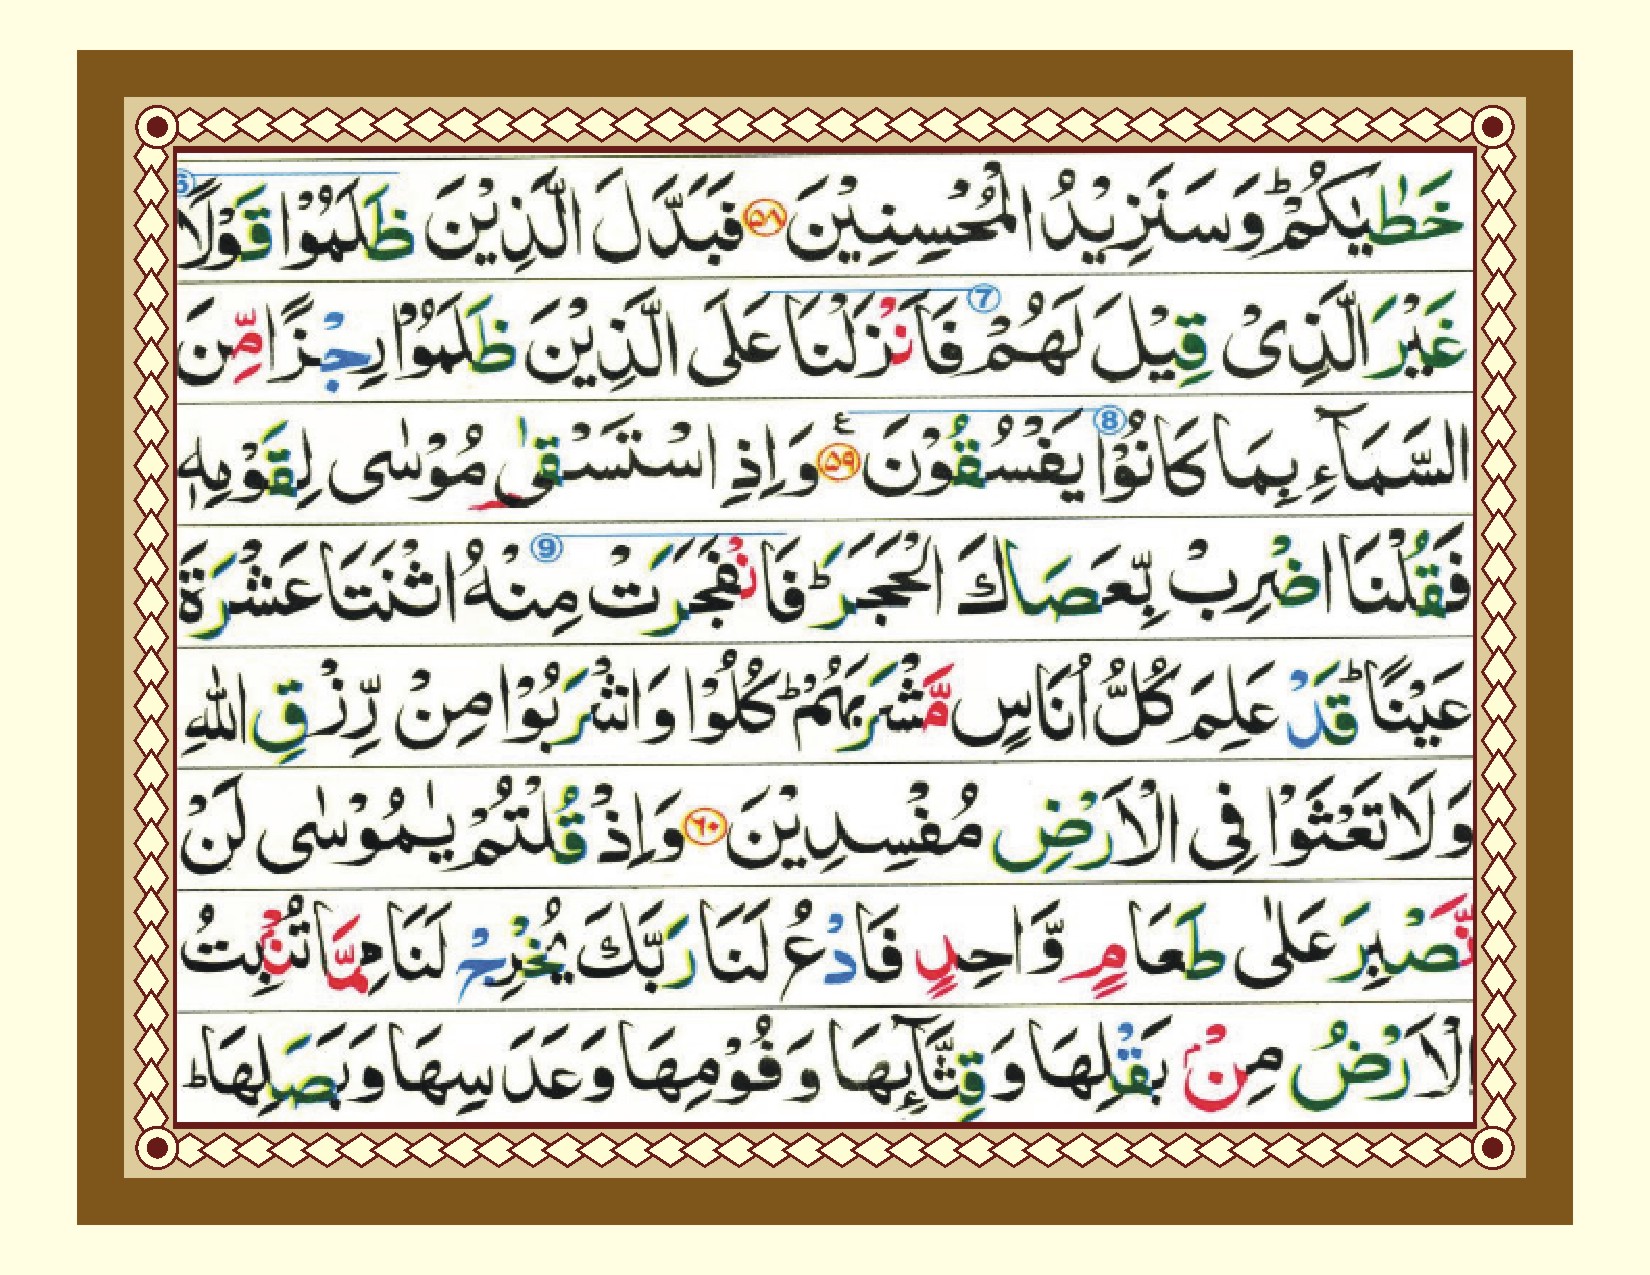 خَطٰيٰكُمْ ؕ وَسَنَزِيْدُ الْمُحْسِنِيْنَ ۝۵۸ فَبَدَّلَ الَّذِيْنَ ظَلَمُوْا قَوْلًا
غَيْرَ الَّذِىْ قِيْلَ لَهُمْ 7 فَاَنْزَلْنَا عَلَى الَّذِيْنَ ظَلَمُوْا رِجْزًا مِّنَ
السَّمَآءِ بِمَا كَانُوْا 8 يَفْسُقُوْنَ ۝۵۹ ع وَاِذِ اسْتَسْقٰى مُوْسٰى لِقَوْمِهٖ
فَقُلْنَا اضْرِبْ بِّعَصَاكَ الْحَجَرَ ؕ فَانْفَجَرَتْ 9 مِنْهُ اثْنَتَا عَشْرَةَ
عَيْنًا ؕ قَدْ عَلِمَ كُلُّ اُنَاسٍ مَّشْرَبَهُمْ ؕ كُلُوْا وَاشْرَبُوْا مِنْ رِّزْقِ اللّٰهِ
وَلَا تَعْثَوْا فِى الْاَرْضِ مُفْسِدِيْنَ ۝۶۰ وَاِذْ قُلْتُمْ يٰمُوْسٰى لَنْ
نَّصْبِرَ عَلٰى طَعَامٍ وَّاحِدٍ فَادْعُ لَنَا رَبَّكَ يُخْرِجْ لَنَا مِمَّا تُنْۢبِتُ
الْاَرْضُ مِنْۢ بَقْلِهَا وَقِثَّآئِهَا وَفُوْمِهَا وَعَدَسِهَا وَبَصَلِهَا ؕ